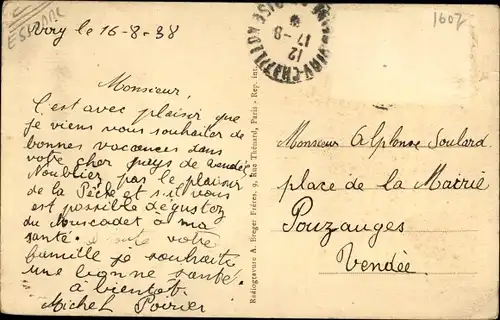 ESPAGNE
le 16-8-38
1607
12
17-8
Monsieur,
C'est avec plaisir que
je viens vous souhaiter de
bonnes vacances dans
votre cher pays de Vendée
Noublier pas le plaisir
de la Pêche et s'il vous
est possible dégustez
du Muscadet à ma
santé. votre
famille je souhaite
une bonne santé.
a bientot
Michel Poirier
Radiogravure A. Breger Frères, 9, Rue Thénard, Paris - Rep. int.
Monsieur Alphonse Soulard
place de la Mairie
Pouzauges
Vendée